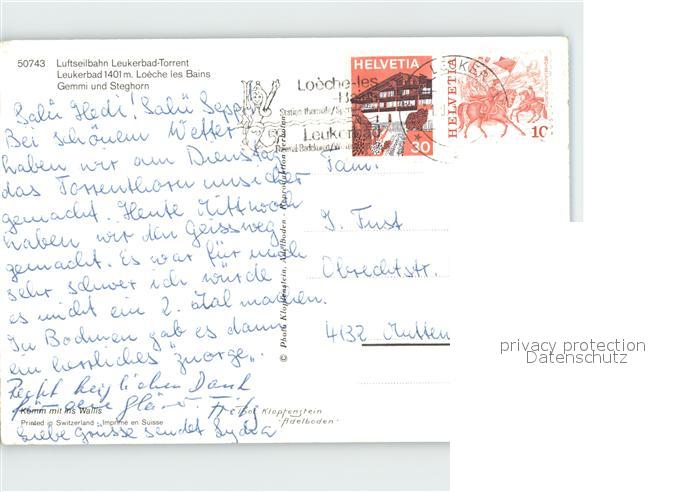 50743 Luftseilbahn Leukerbad-Torrent
Leukerbad 1401 m. Loèche les Bains
Gemmi und Steghorn
Salü Hedi! Salü Sepp
Bei schönem Wetter
haben wir am Dienstag
das Torrenthorn unsicher
gemacht. Heute Mittwoch
haben wir den Geissweg
gemacht. Es war für mich
sehr schwer ich würde
es nicht ein 2. Mal machen.
In Bodmen gab es dann
ein herrliches "znorge".
Recht herzlichen Dank
Liebe Grüsse sendet
Komm mit ins Wallis
Printed in Switzerland - Imprimé en Suisse
© Photo Klopfenstein, Adelboden - Reproduktion verboten
Klopfenstein
"Adelboden"
Loèche-les
Leukerbad
HELVETIA
30
HELVETIA
10
LEUKERBAD
Fam.
J. Fust
Obrechtstr.
4132 Mutten
privacy protection
Datenschutz